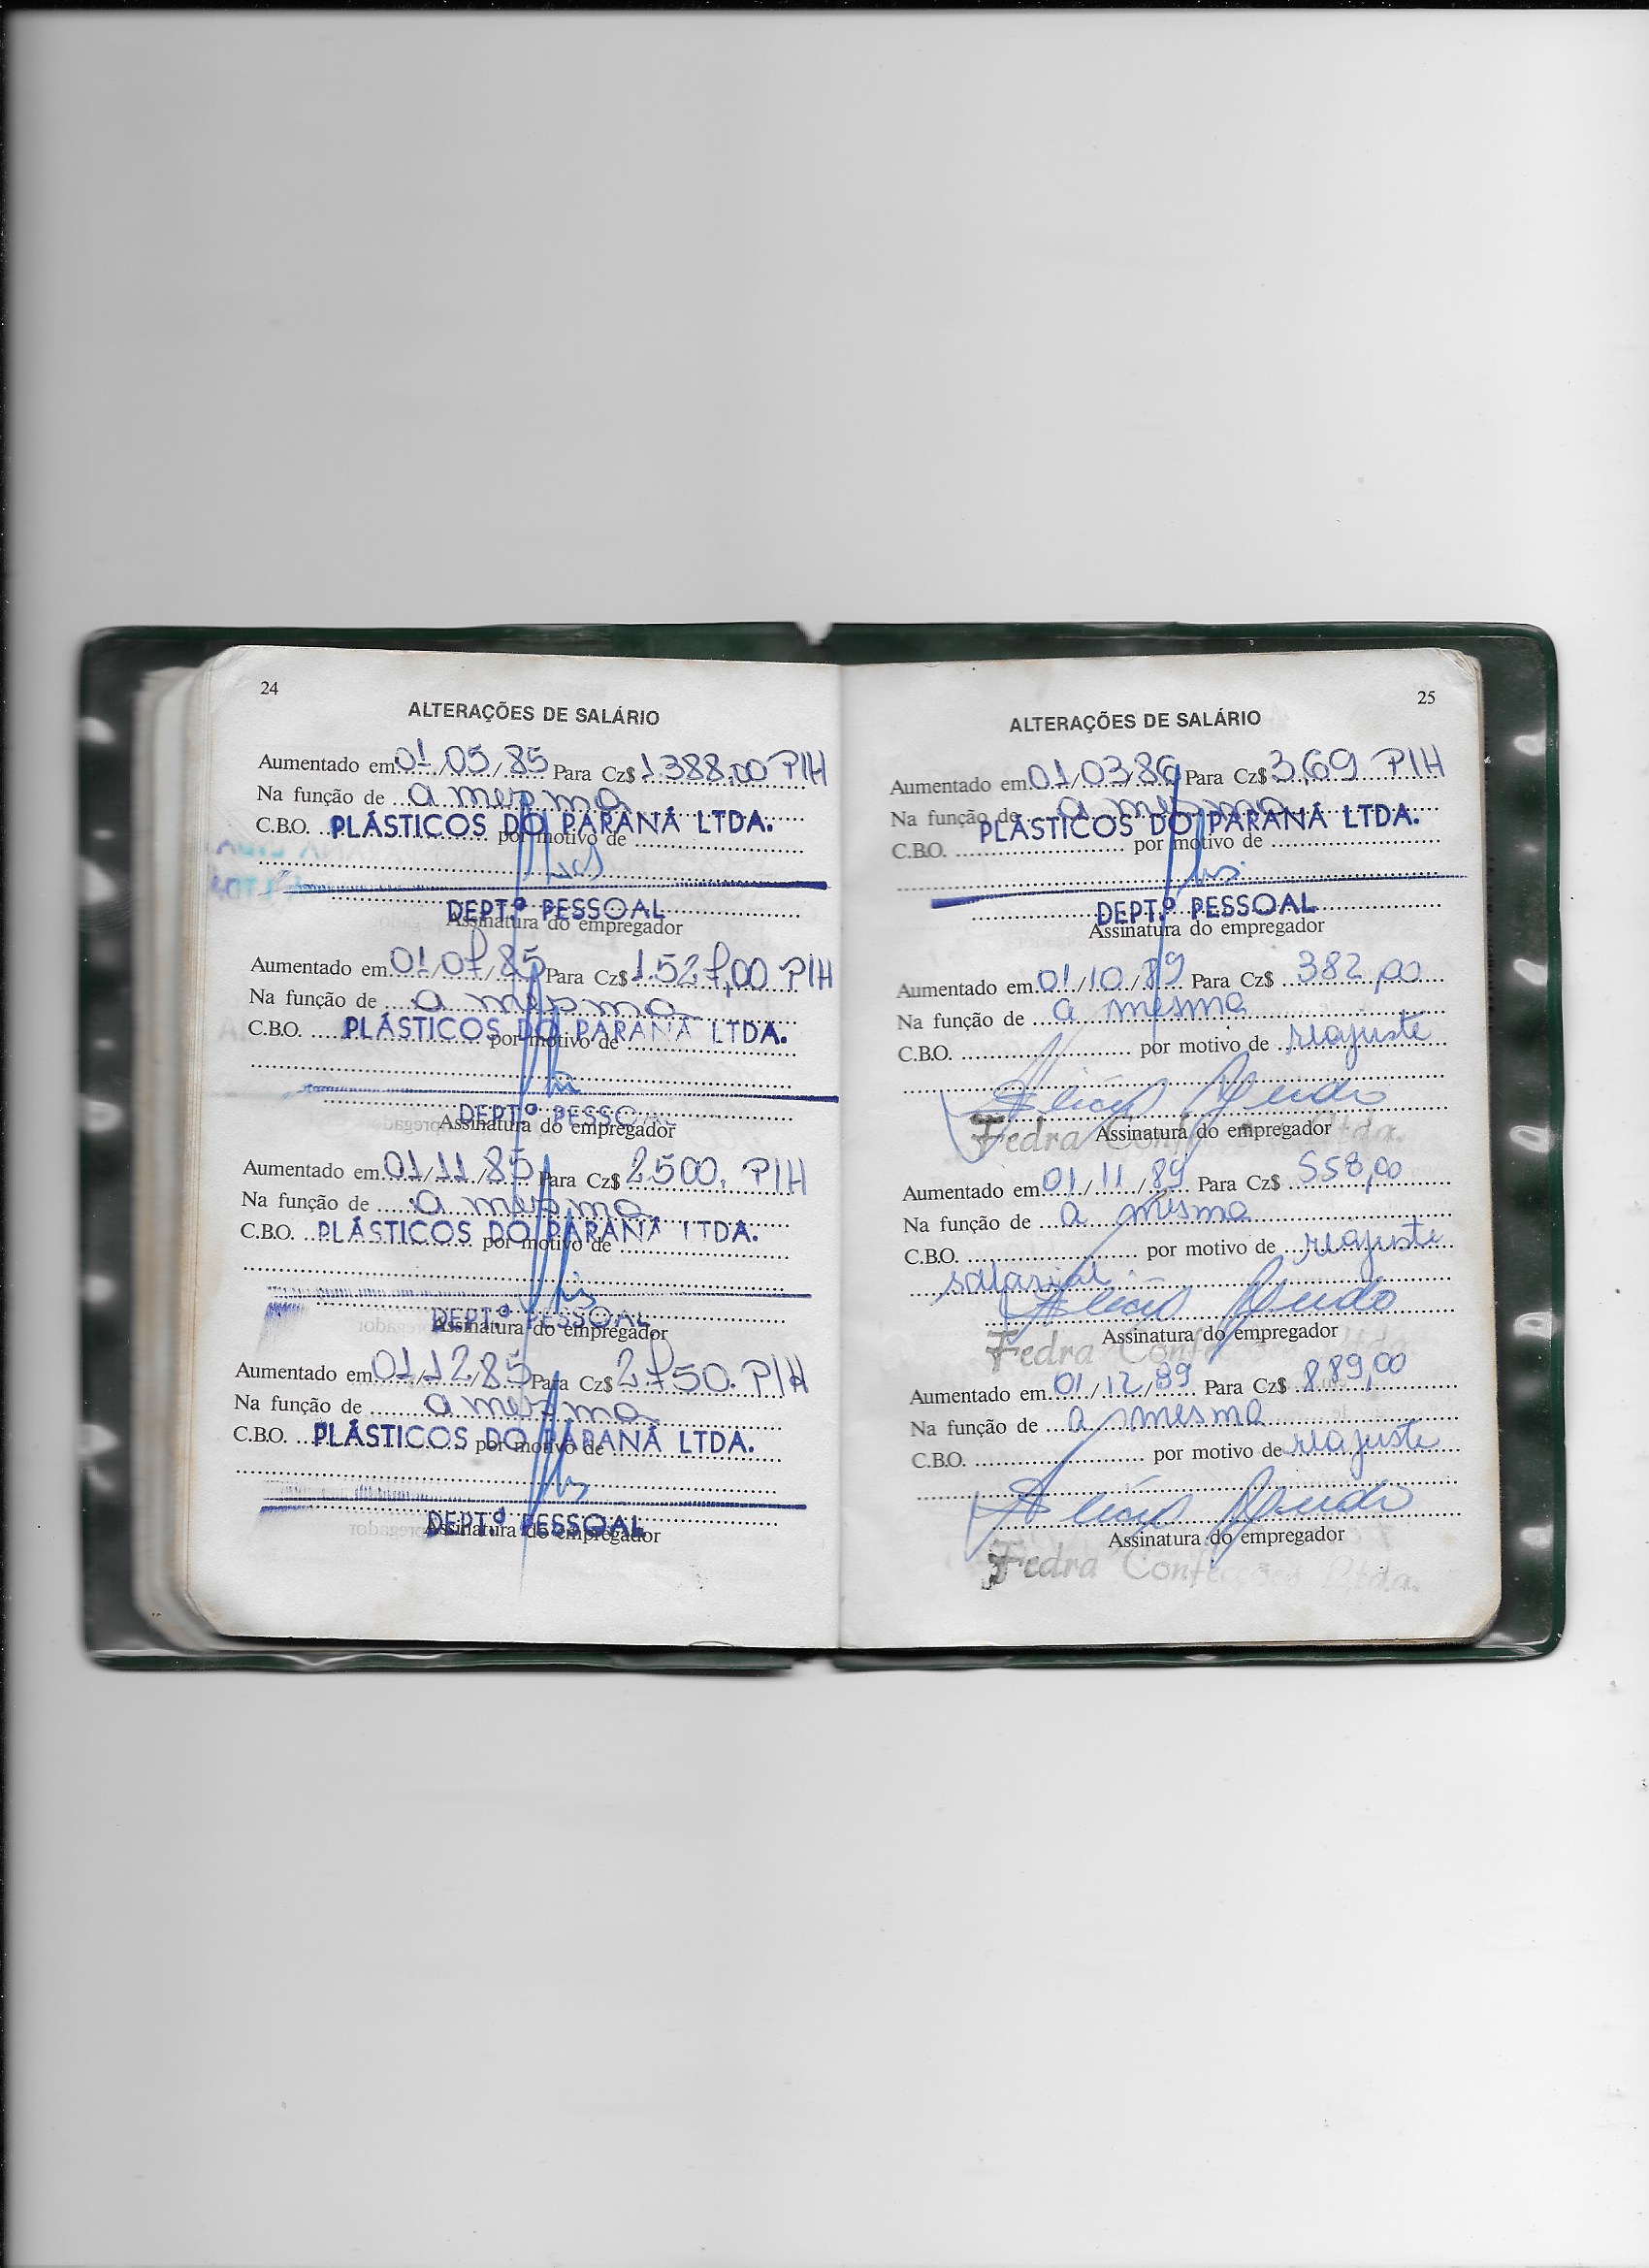 24
ALTERAÇÕES DE SALÁRIO
Aumentado em 01/05/85 Para Cz$ 1388,00 P/H
Na função de a mesma
C.B.O. PLÁSTICOS DO PARANÁ LTDA. por motivo de
DEPTº PESSOAL
Assinatura do empregador
Aumentado em 01/07/85 Para Cz$ 1.527,00 P/H
Na função de a mesma
C.B.O. PLÁSTICOS DO PARANÁ LTDA. por motivo de
DEPTº PESSO
Assinatura do empregador
Aumentado em 01/11/85 Para Cz$ 2500, P/H
Na função de a mesma
C.B.O. PLÁSTICOS DO PARANÁ LTDA. por motivo de
DEPTº PESSOAL
Assinatura do empregador
Aumentado em 01/12/85 Para Cz$ 2750. P/H
Na função de a mesma
C.B.O. PLÁSTICOS DO PARANÁ LTDA. por motivo de
DEPTº PESSOAL
Assinatura do empregador
25
ALTERAÇÕES DE SALÁRIO
Aumentado em 01/03/86 Para Cz$ 3,69 P/H
Na função de a mesma
PLÁSTICOS DO PARANÁ LTDA.
C.B.O. por motivo de
DEPTº PESSOAL
Assinatura do empregador
Aumentado em 01/10/89 Para Cz$ 382,00
Na função de a mesma
C.B.O. por motivo de reajuste
Fedra Conf Ltda.
Assinatura do empregador
Aumentado em 01/11/89 Para Cz$ 558,00
Na função de a mesma
C.B.O. por motivo de reajuste
salarial
Assinatura do empregador
Fedra Confecções
Aumentado em 01/12/89 Para Cz$ 889,00
Na função de a mesma
C.B.O. por motivo de reajuste
Assinatura do empregador
Fedra Confecções Ltda.